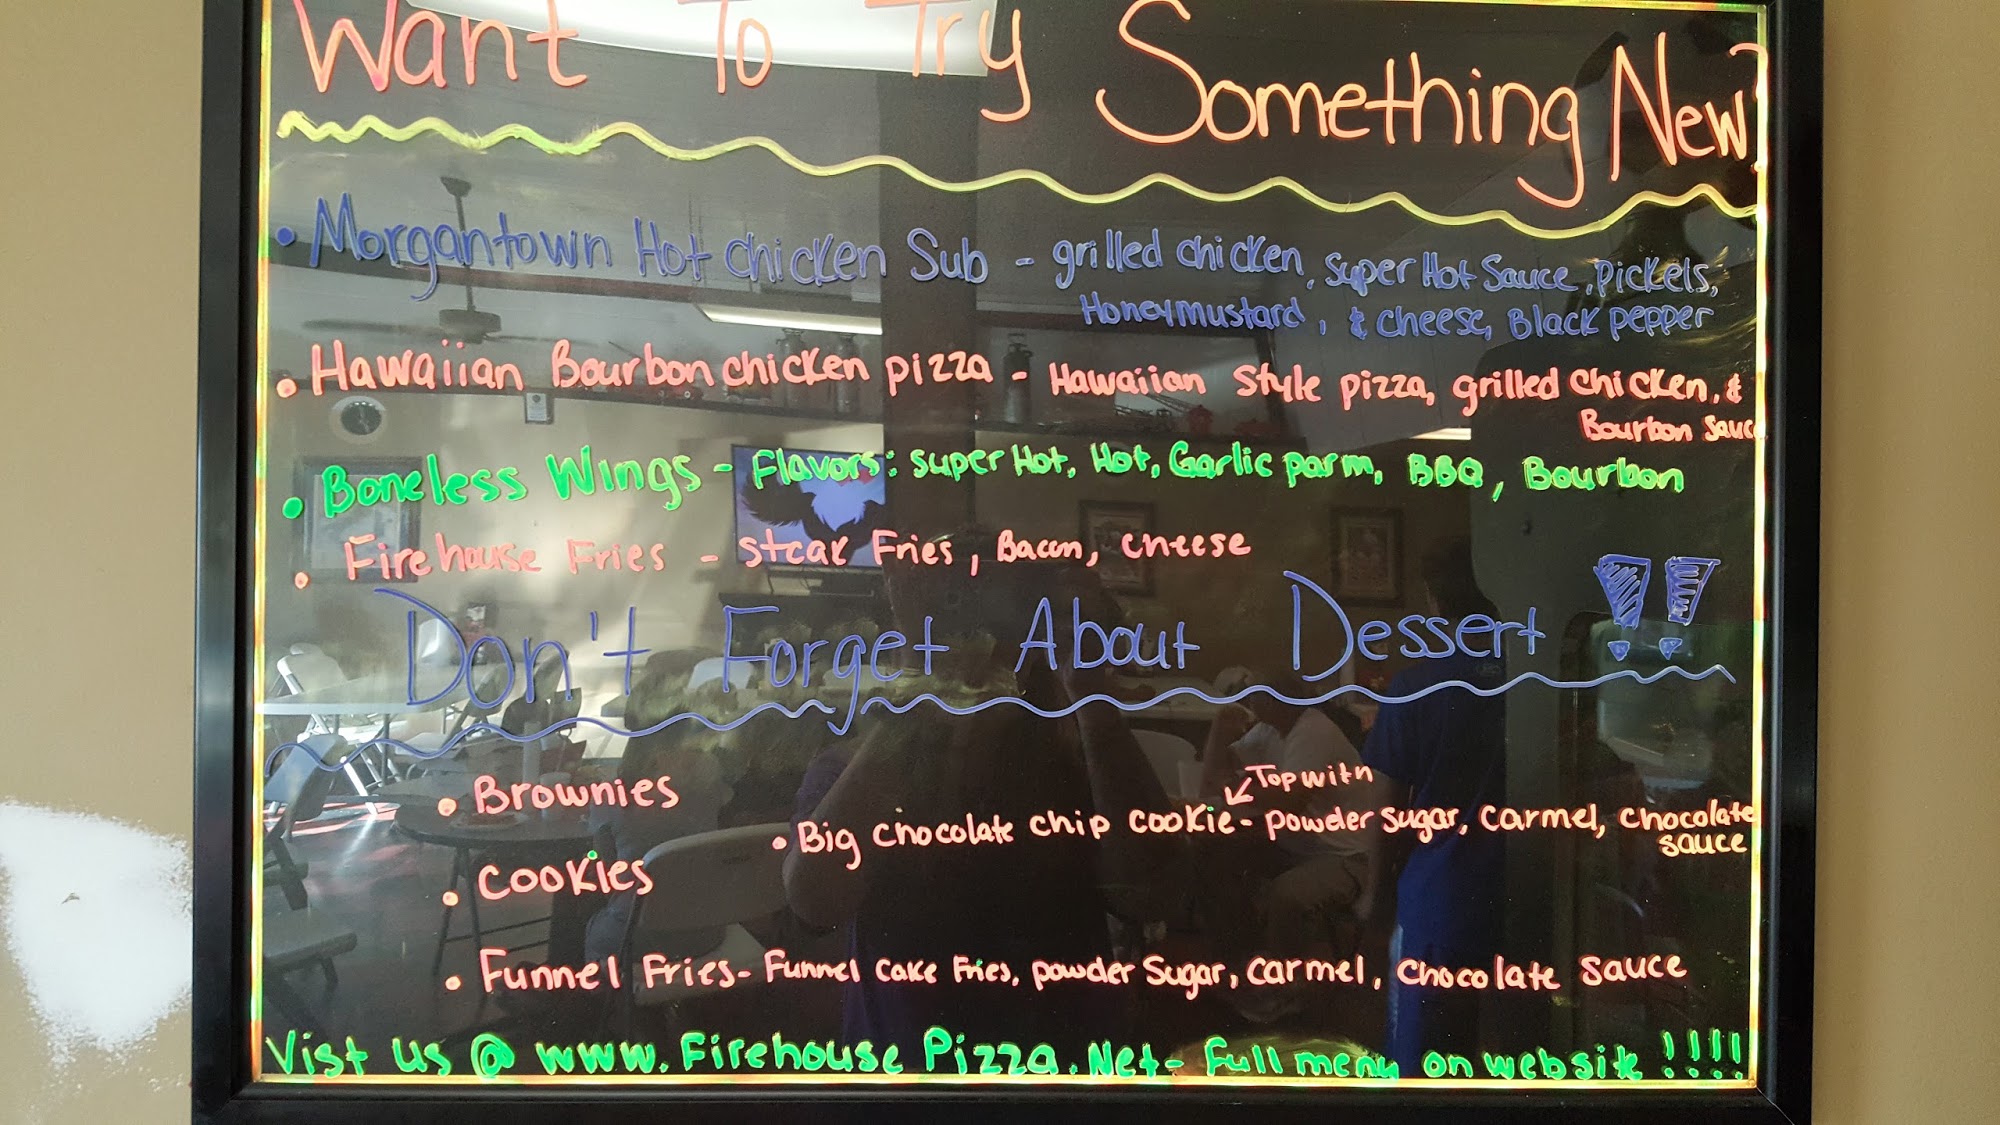 Want To Try Something New?
• Morgantown Hot Chicken Sub - grilled chicken, super Hot Sauce, pickels,
Honeymustard, & cheese, Black pepper
• Hawaiian Bourbon chicken pizza - Hawaiian Style pizza, grilled chicken, &
Bourbon sauce
• Boneless Wings - Flavors: super Hot, Hot, Garlic parm, BBQ, Bourbon
• Firehouse Fries - steak Fries, Bacon, cheese
Don't Forget About Dessert !!
• Brownies
Top with
• Big chocolate chip cookie - powder sugar, carmel, chocolate
sauce
• cookies
• Funnel Fries - Funnel cake Fries, powder sugar, carmel, chocolate sauce
Vist us @ www.FirehousePizza.Net - Full menu on website !!!!